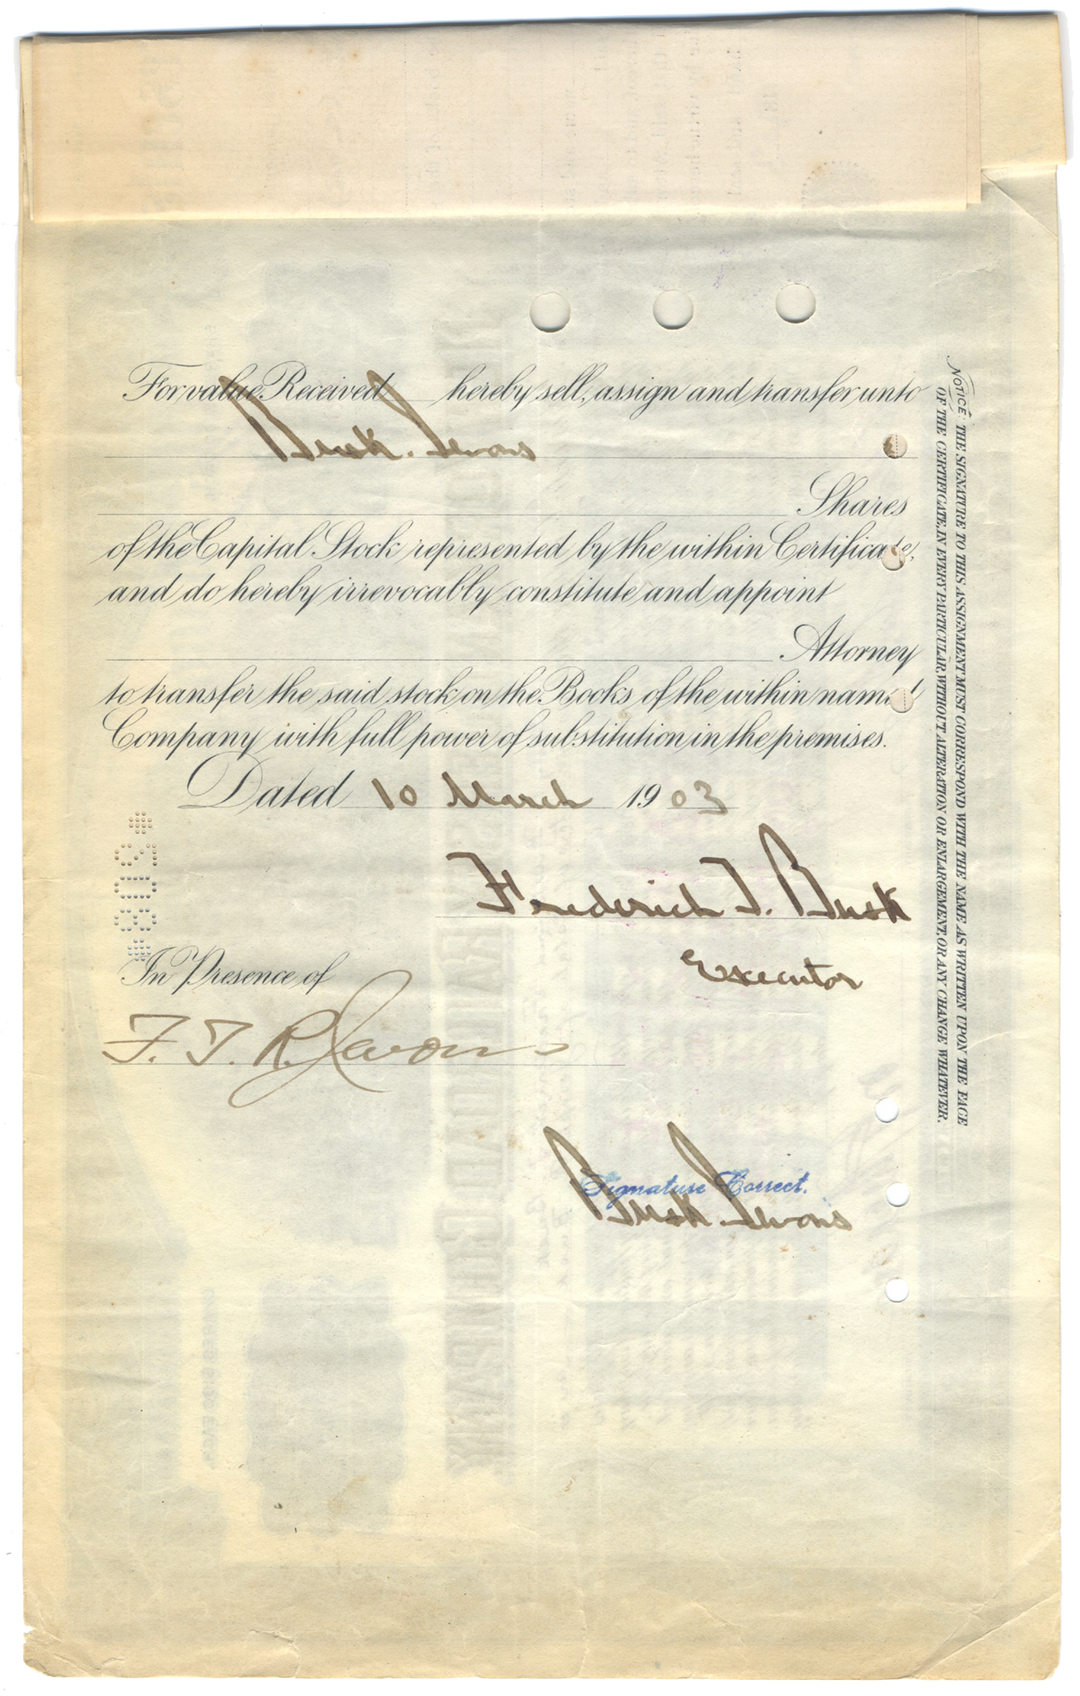 For value Received hereby sell, assign and transfer unto
Busk. Jevons
Shares
of the Capital Stock represented by the within Certificate,
and do hereby irrevocably constitute and appoint
Attorney
to transfer the said stock on the Books of the within named
Company with full power of substitution in the premises.
Dated 10 March 1903
Frederick T. Busk
Executor
In Presence of
F. T. R. Jevons
Signature Correct.
Busk. Jevons
NOTICE: THE SIGNATURE TO THIS ASSIGNMENT MUST CORRESPOND WITH THE NAME AS WRITTEN UPON THE FACE
OF THE CERTIFICATE, IN EVERY PARTICULAR, WITHOUT ALTERATION OR ENLARGEMENT, OR ANY CHANGE WHATEVER.